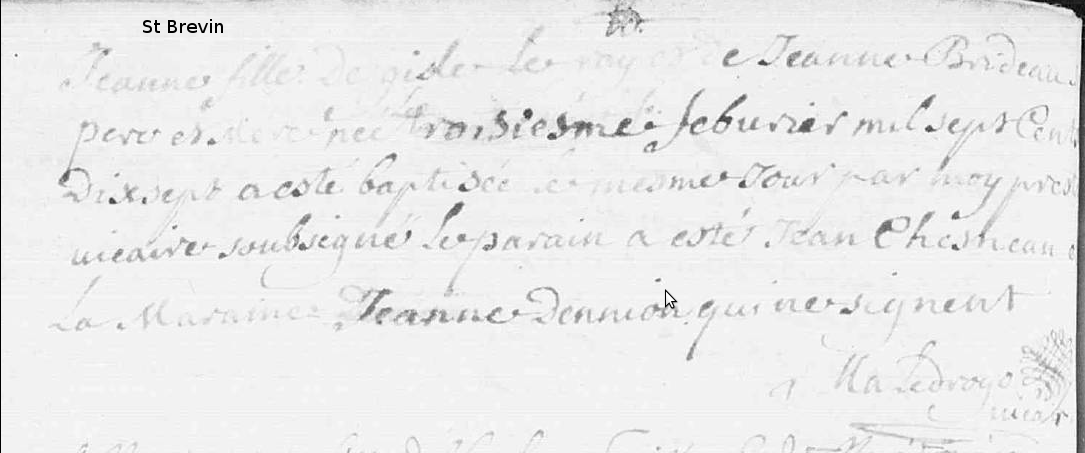 St Brevin
Jeanne fille De gisle Le roy et de Jeanne Brideau
pere et Mere née troisiesme feburier mil sept Cent
Dix sept a esté baptisée le mesme Jour par moy
vicaire soubsigné Le parain a esté Jean Chesneau
La Maraine Jeanne Dennion qui ne signent
vicar